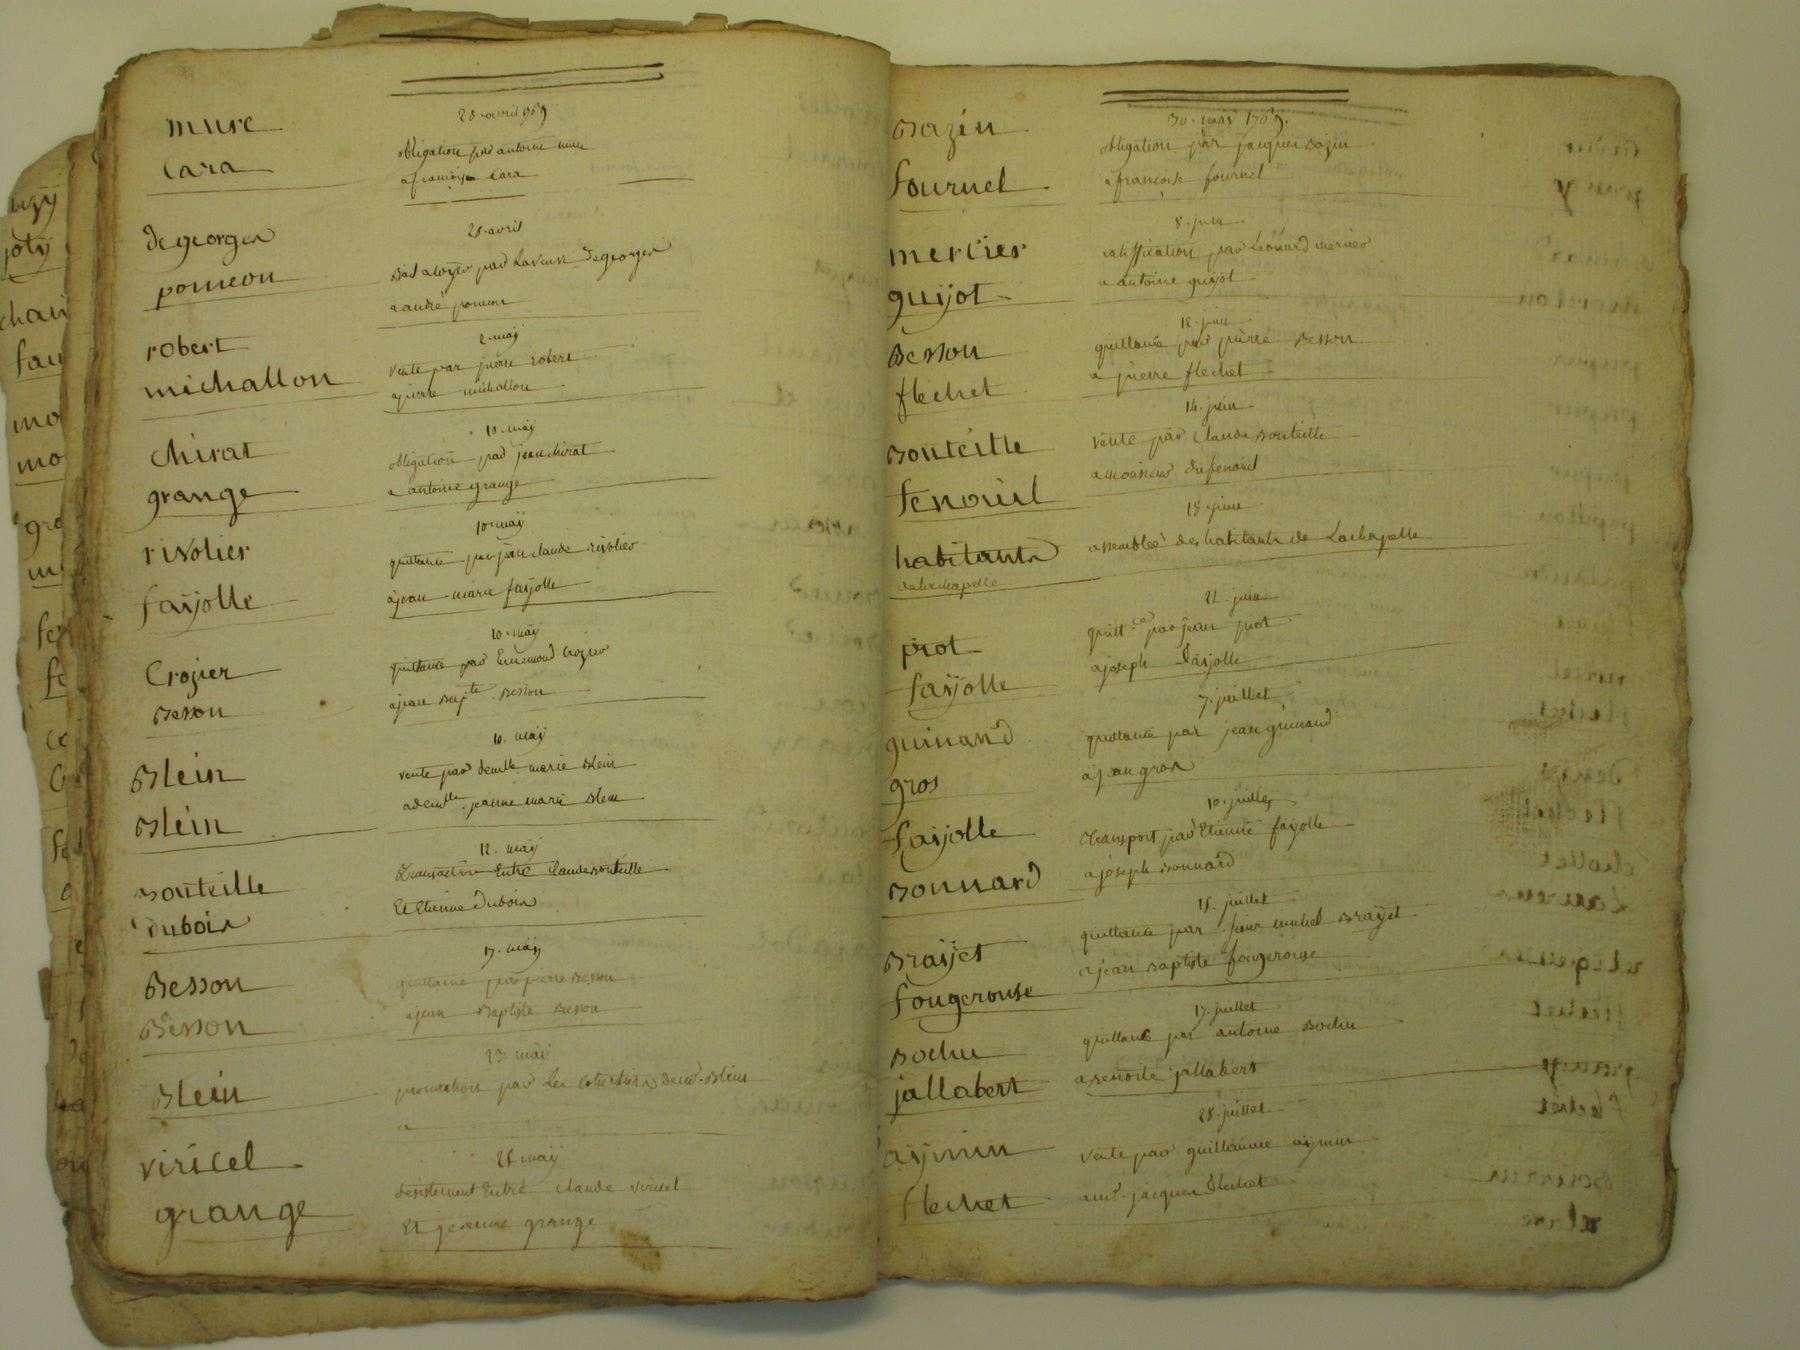 mure
cara
28 avril 1769
obligation par antoine mure
a françoise cara
degeorges
pomeon
28 avril
Bail a loyer par Laveuve degeorges
a andré pomeon
robert
michallon
2 may
vente par pierre robert
a pierre michallon
chirat
grange
10 may
obligation par jean chirat
a antoine grange
rivolier
fayjolle
10 may
quittance par jean claude rivolier
a jean marie fayjolle
Crozier
Besson
10 may
quittance par Ennemond Crozier
a jean Bapte Besson
Blein
Blein
10 may
vente par demlle marie Blein
a demlle jeanne marie Blein
Bonteille
dubois
12 may
transaction Entre Claude Bonteille
Et Etienne Dubois
Besson
Besson
17 may
quittance par pierre Besson
a jean Baptiste Besson
Blein
23 may
par Les de mr Blein
a
viricel
grange
28 may
desistement Entre Claude viricel
Et jeanne grange
Bazin
fournel
30 may 1769
obligation par jacques Bazin
a françoise fournel
mercier
guijot
8 juin
ratiffication par Léonard mercier
a antoine guijot
Besson
flechet
12 juin
quittance par pierre Besson
a pierre flechet
Bonteille
fenouil
14 juin
vente par Claude Bonteille
a monsieur dufenouil
habitants
de lachapelle
18 juin
assemblée des habitants de Lachapelle
piot
fayjolle
21 juin
quittce par jean piot
a joseph fayjolle
guinand
gros
7 juillet
quittance par jean guinand
a jean gros
fayjolle
Bonnard
10 juillet
transport par Etienne fayjolle
a joseph Bonnard
Brayjet
fougerouse
18 juillet
quittance par michel Brayjet
a jean Baptiste fougerouse
Bochu
jallabert
17 juillet
quittance par antoine Bochu
a benoite jallabert
aymin
flechet
28 juillet
vente par guillaume aymin
a mr jacques flechet